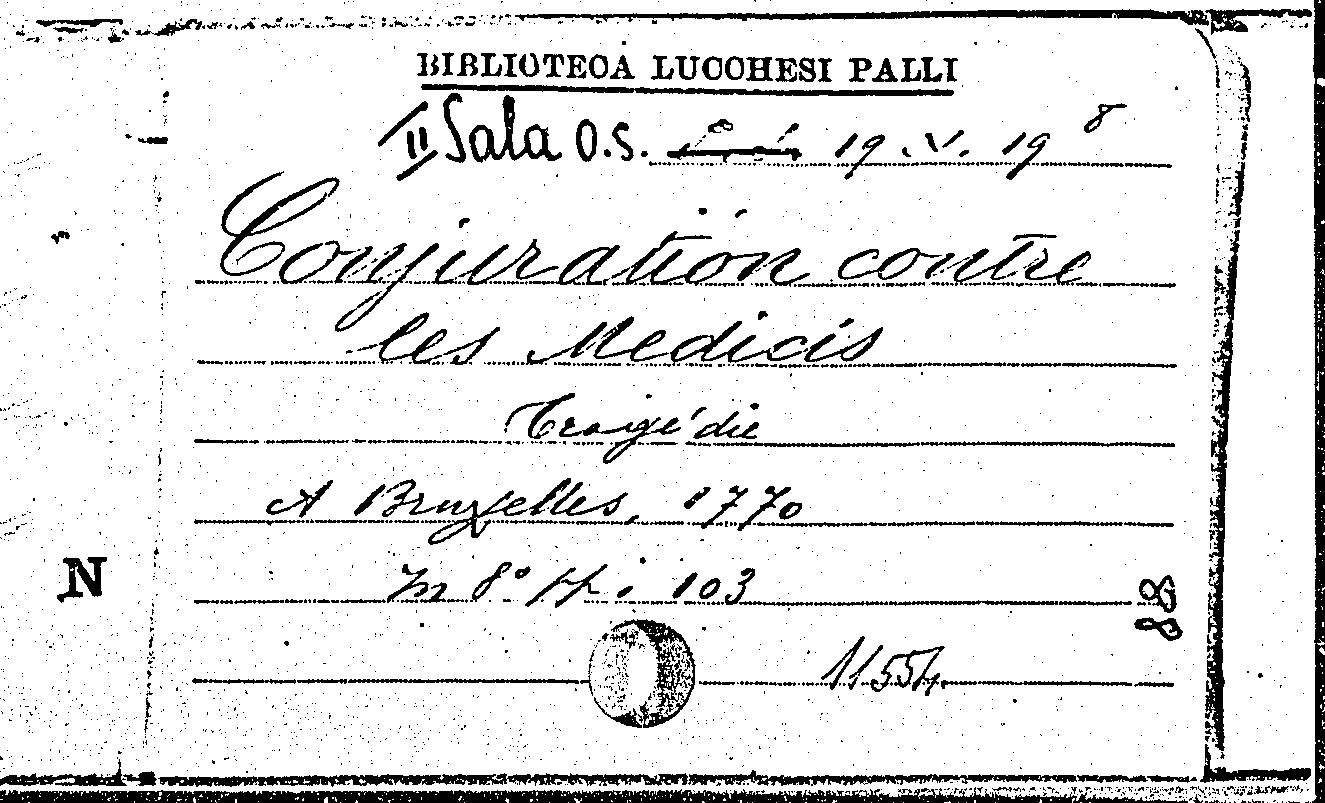 BIBLIOTECA LUCCHESI PALLI
II Sala O.S. 19.V.19 8
Conjuration contre
les Medicis
Tragédie
A Bruxelles, 1770
In 8° pp. i 103
N
88
11554.